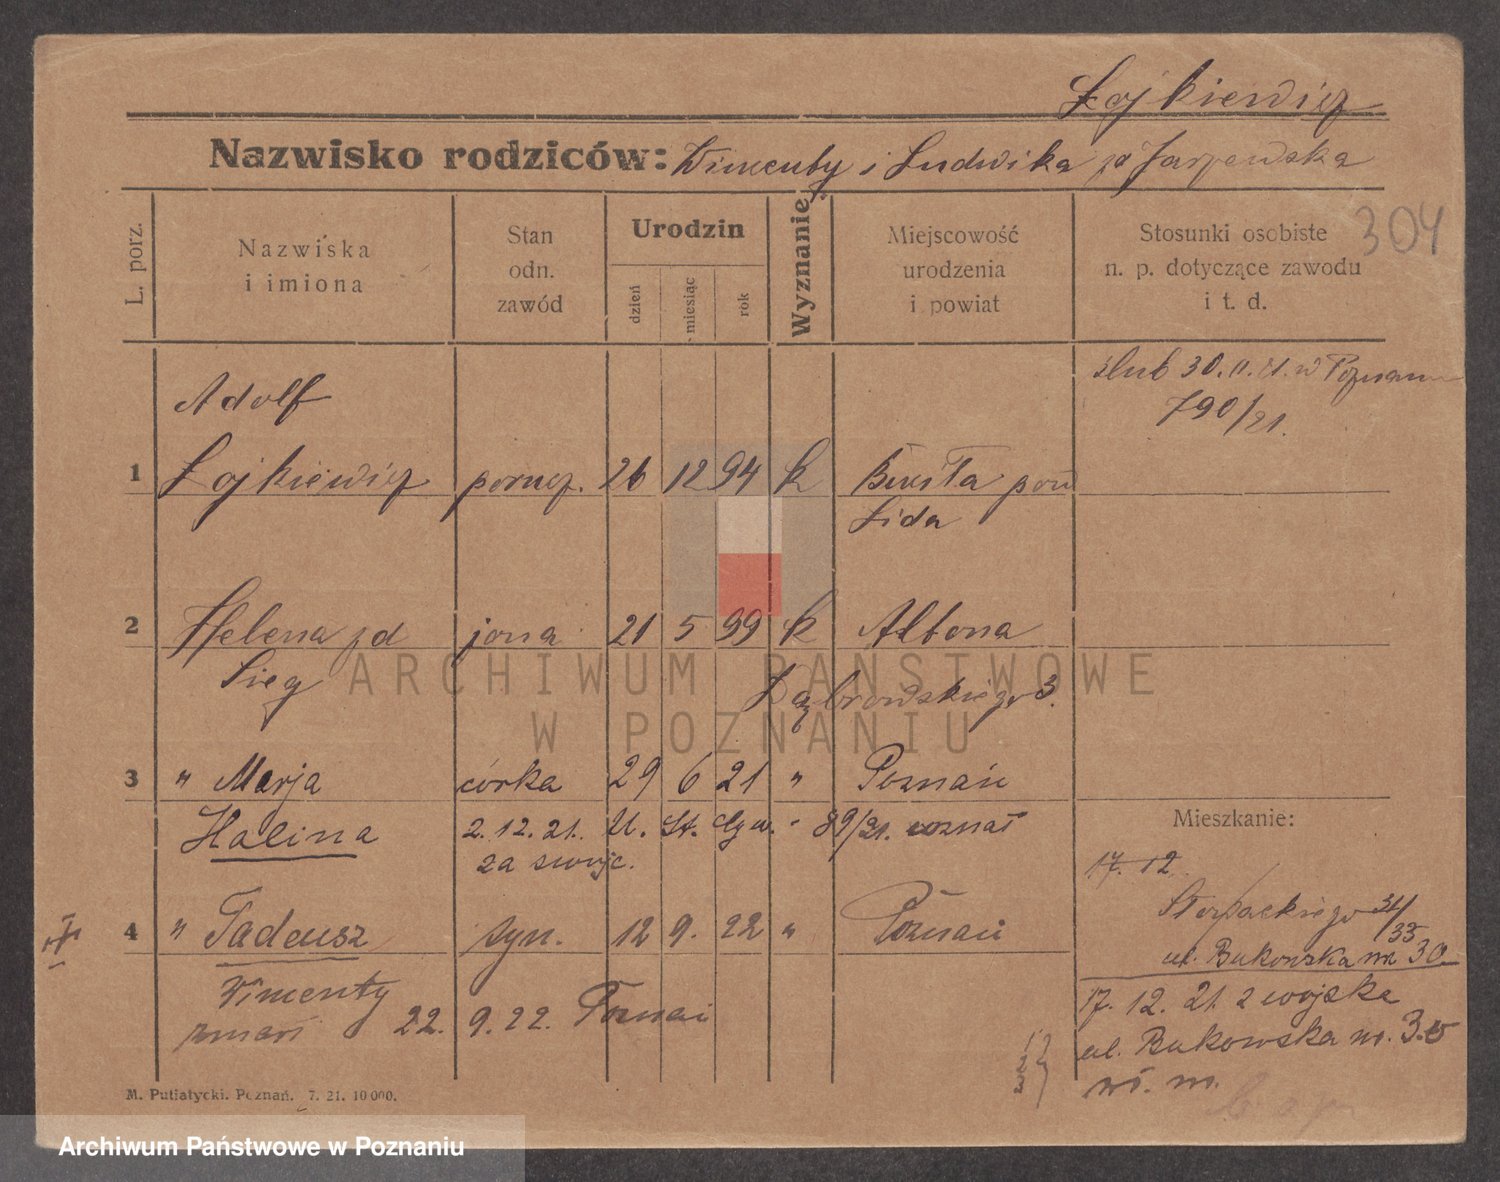 Łojkiewicz
Nazwisko rodziców: Wincenty i Ludwika zd Jarzewska
304
L. porz.
Nazwiska
i imiona
Stan
odn.
zawód
Urodzin
dzień
miesiąc
rok
Wyznanie
Miejscowość
urodzenia
i powiat
Stosunki osobiste
n. p. dotyczące zawodu
i t. d.
ślub 30.11.21. w Poznaniu
790/21.
Adolf
1 Łojkiewicz porucz. 26 12 94 k pow
Lida
2 Helena zd żona 21 5 99 k Altona
Sieg
Dąbrowskiego 3.
3 " Marja córka 29 6 21 " Poznań
Halina 2.12.21. U. St. 89/21. uznał
za swoje.
Mieszkanie:
17. 12
4 " Tadeusz syn. 12 9. 22 " Poznań
31/33
ul. Bukowska nr 30
Wincenty
zmarł 22. 9. 22. Poznań
17. 12. 21. z wojska
ul. Bukowska nr. 30
wł. m.
M. Putiatycki. Poznań. 7. 21. 10 000.
ARCHIWUM PAŃSTWOWE
W POZNANIU
Archiwum Państwowe w Poznaniu